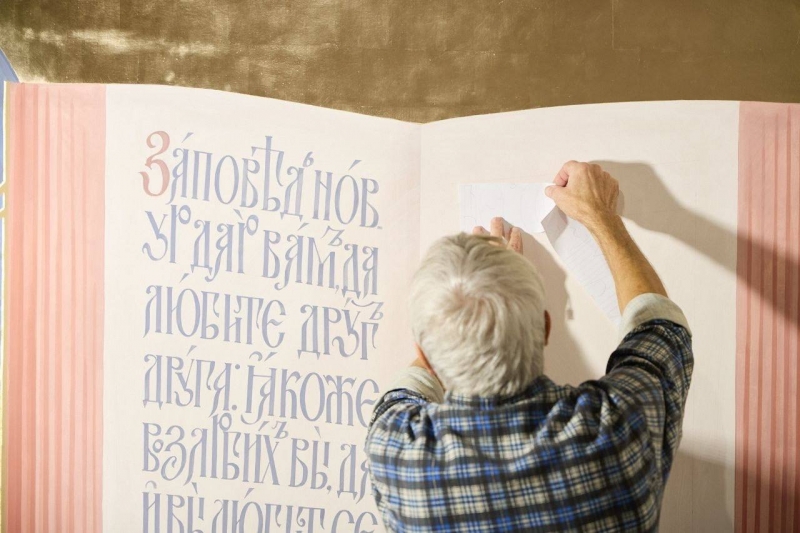 За́повѣдь но́в
ꙋ́ю даю̀ ва́мъ, да
лю́бите дрꙋ́гъ
дрꙋ́га: ꙗ҆́коже
возлюби́хъ вы̀, да
и҆ вы̀ лю́бите се